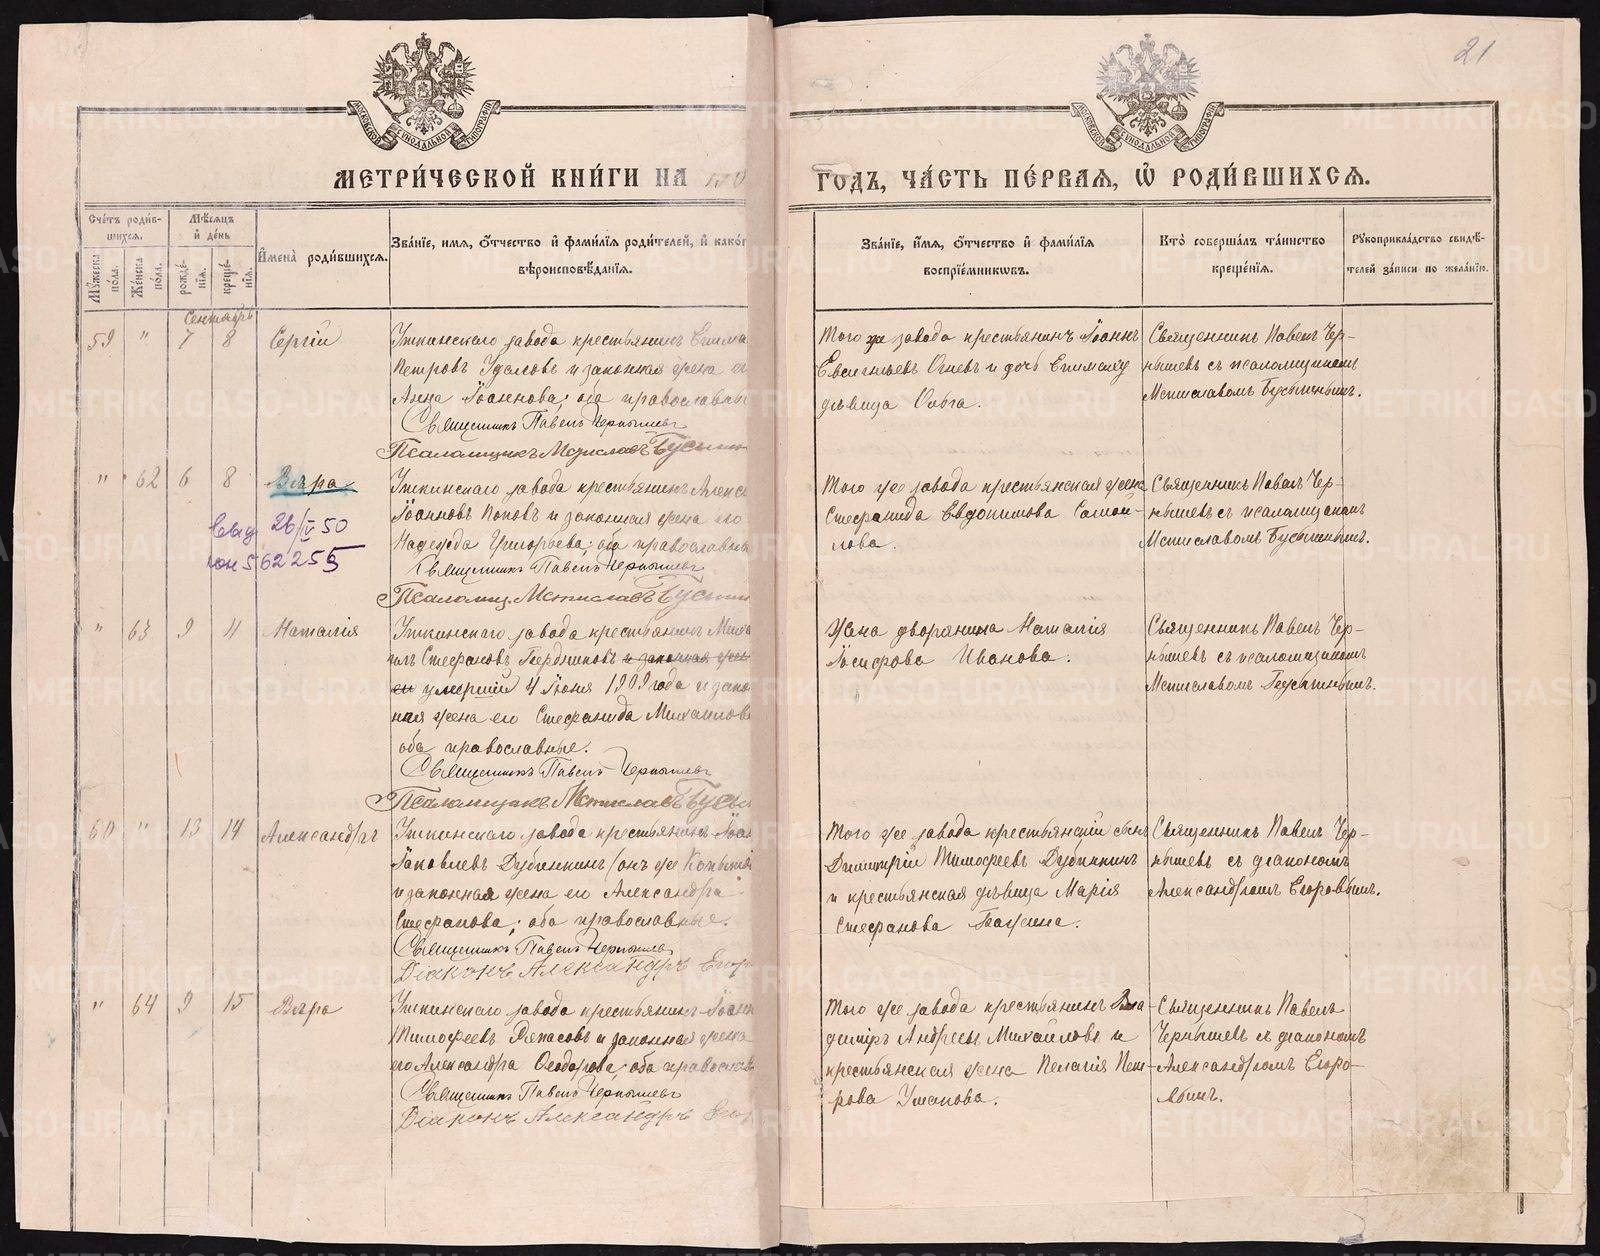 21
МЕТРИ́ЧЕСКОЙ КНИ́ГИ НА
ГОДЪ, ЧА́СТЬ ПЕ́РВАѦ, Ѡ҆ РОДИ́ВШИХСѦ.
Сче́тъ роди́в-
шихсѧ.
Мѣ́сѧцъ
и҆ де́нь
И҆мена̀ роди́вшихсѧ.
Зва́нїе, имѧ, О҆́тчество и҆ фами́лїѧ роди́телей, и҆ како́г
вѣроисповѣ́данїѧ.
Мꙋ́жеска
по́ла.
Же́нска
по́ла.
рожде́-
нїѧ.
креще́-
нїѧ.
Зва́нїе, и҆́мѧ, О҆́тчество и҆ фами́лїѧ
воспрїе́мникѡвъ.
Кто̀ соверша́лъ та́инство
креще́нїѧ.
Рꙋкоприкла́дство свидѣ́-
телей за́писи по жела́нїю.
Сентябрь
59 " 7 8 Сергій
Уткинскаго завода крестьянинъ
Петровъ Удаловъ и законная жена
Анна Іоаннова; оба православны
Священникъ Павелъ Чернышевъ
Псаломщикъ Мстиславъ
Того же завода крестьянинъ Іоаннъ
Евсигніевъ Огневъ и дочь
дѣвица Ольга.
Священникъ Павелъ Чер-
нышевъ съ псаломщикомъ
Мстиславомъ
" 62 6 8 Вѣра
Свид 26/V 50
562255
Уткинскаго завода крестьянинъ Алекса
Іоанновъ Поповъ и законная жена его
Надежда Григорьева; оба православны
Священникъ Павелъ Чернышевъ
Псаломщ. Мстиславъ
Того же завода крестьянская жена
Стефанида Евдокимова Самой-
лова.
Священникъ Павелъ Чер-
нышевъ съ псаломщикомъ
Мстиславомъ
" 63 9 11 Наталія
Уткинскаго завода крестьянинъ Миха
илъ Стефановъ Бердниковъ и законная жен
ея умершій 4 Іюня 1909 года и закон
ная жена его Стефанида Михаилова
оба православные.
Священникъ Павелъ Чернышевъ
Псаломщикъ Мстиславъ
Жена дворянина Наталія
Іосифова Иванова.
Священникъ Павелъ Чер-
нышевъ съ псаломщикомъ
Мстиславомъ
60 " 13 14 Александръ
Уткинскаго завода крестьянинъ Іоан
Іаковлевъ Дубинкинъ (онъ же
и законная жена его Александра
Стефанова; оба православные.
Священникъ Павелъ Чернышевъ
Діаконъ Александръ Егор
Того же завода крестьянскій сынъ
Димитрій Тимофеевъ Дубинкинъ
и крестьянская дѣвица Марія
Стефанова Бажина.
Священникъ Павелъ Чер-
нышевъ съ діакономъ
Александромъ Егоровымъ.
" 64 9 15 Вѣра
Уткинскаго завода крестьянинъ Іоанн
Тимофеевъ и законная жена
его Александра Ѳеодорова; оба православ
Священникъ Павелъ Чернышевъ
Діаконъ Александръ Егор
Того же завода крестьянинъ Вла
диміръ Андреевъ Михайловъ и
крестьянская жена Пелагія Пет-
рова
Священникъ Павелъ
Чернышевъ съ діакономъ
Александромъ Егоро-